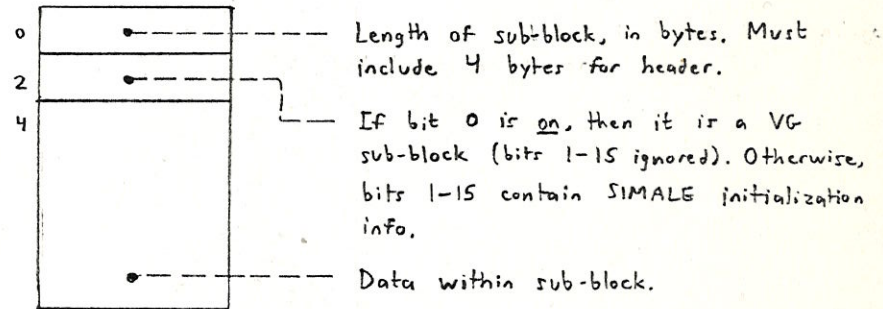 0
Length of sub-block, in bytes. Must
include 4 bytes for header.
2
4
If bit 0 is on, then it is a VG
sub-block (bits 1-15 ignored). Otherwise,
bits 1-15 contain SIMALE initialization
info.
Data within sub-block.